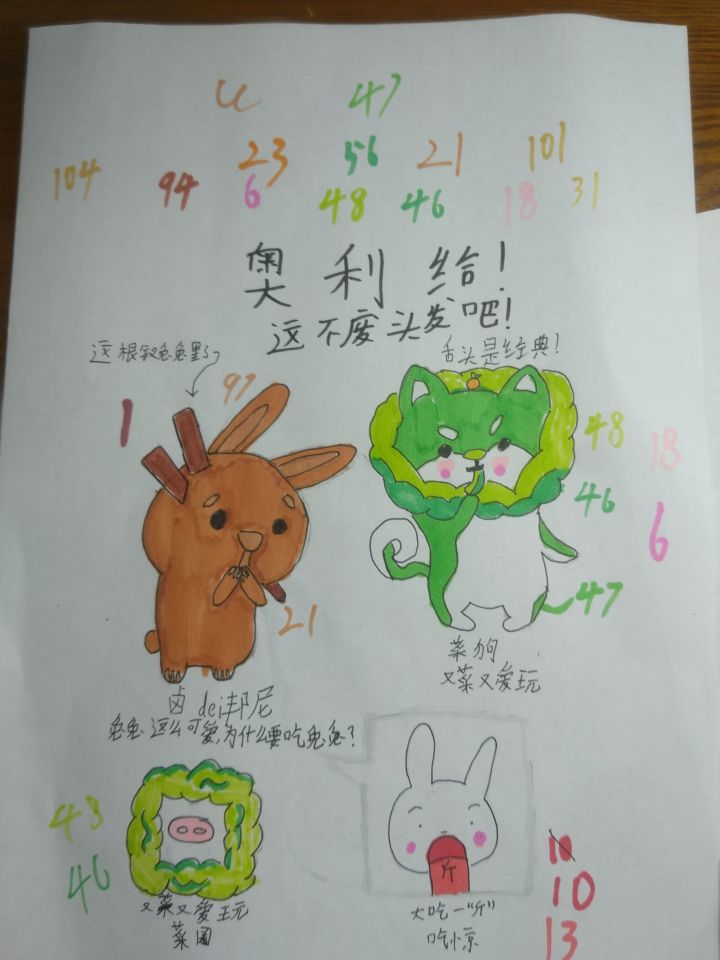 47
23 56 21 101
104 94 6 48 46 18 31
奥利给!
这不废头发吧!
舌头是经典!
97
1
48
18
46
6
47
21
菜狗
又菜又爱玩
卤dei邦尼
兔兔这么可爱,为什么要吃兔兔?
43
46
斤
10
10
13
又菜又爱玩
菜圈
大吃一"斤"
吃惊